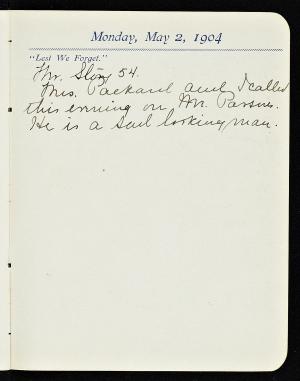 Monday, May 2, 1904
"Lest We Forget."
Mr. 54.
Mrs. Packard and I called
this evening on Mr. Parsons.
He is a sad looking man.